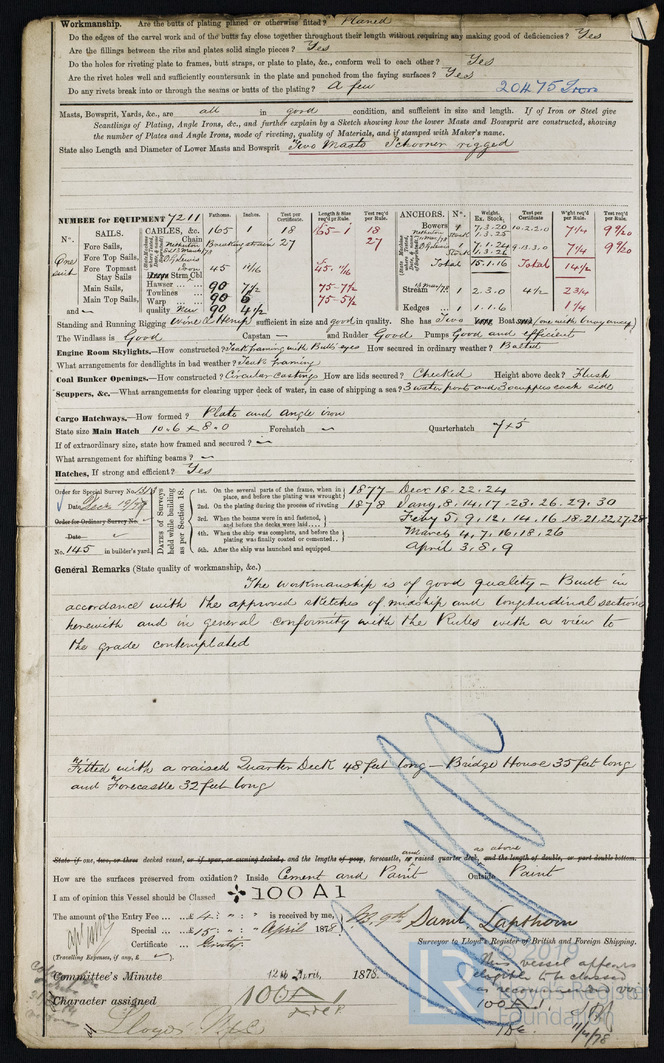 Workmanship. Are the butts of plating planed or otherwise fitted? Planed
Do the edges of the carvel work and of the butts fay close together throughout their length without requiring any making good of deficiencies? Yes
Are the fillings between the ribs and plates solid single pieces? Yes
Do the holes for riveting plate to frames, butt straps, or plate to plate, &c., conform well to each other? Yes
Are the rivet holes well and sufficiently countersunk in the plate and punched from the faying surfaces? Yes
Do any rivets break into or through the seams or butts of the plating? A few
20475 Iron
Masts, Bowsprit, Yards, &c., are all in good condition, and sufficient in size and length. If of Iron or Steel give
Scantlings of Plating, Angle Irons, &c., and further explain by a Sketch showing how the lower Masts and Bowsprit are constructed, showing
the number of Plates and Angle Irons, mode of riveting, quality of Materials, and if stamped with Maker's name.
State also Length and Diameter of Lower Masts and Bowsprit Two Masts Schooner rigged
NUMBER for EQUIPMENT 7211 Fathoms. Inches. Test per Certificate. Length & Size req'd per Rule. Test req'd per Rule.
ANCHORS. No. Weight. Ex. Stock. Test per Certificate. W'ght req'd per Rule. Test req'd per Rule.
No. SAILS. CABLES, &c.
Fore Sails, Chain 165 1 18 165-1 18
Fore Top Sails, Breaking strain 27 27
One suit
Fore Topmast Stay Sails Iron Strm Cbl 45
Main Sails, Hawser 90 7½ 75-7½
Main Top Sails, Towlines 90 6
Warp 90 4½ 75-5½
and quality New
Bowers 1 7.3.20 10.2.2.0 7¼
7.3.25
1 7.1.24 9.13.3.0 7¼
1.3.26
Total 15.1.16 Total 14½
Stream 1 2.3.0 4½ 2¾
Kedges 1 1.1.6 1¼
Standing and Running Rigging Wire & Hemp sufficient in size and good in quality. She has Two Boats and (one with buoyancy)
The Windlass is Good Capstan — and Rudder Good Pumps Good and efficient
Engine Room Skylights.—How constructed? Teak framing with Bulls eyes How secured in ordinary weather? Bolted
What arrangements for deadlights in bad weather? Teak framing
Coal Bunker Openings.—How constructed? Circular castings How are lids secured? Checked Height above deck? Flush
Scuppers, &c.—What arrangements for clearing upper deck of water, in case of shipping a sea? 3 water ports and 3 scuppers each side
Cargo Hatchways.—How formed? Plate and Angle iron
State size Main Hatch 10.6 x 8.0 Forehatch — Quarterhatch 7 x 5
If of extraordinary size, state how framed and secured? —
What arrangement for shifting beams? —
Hatches, If strong and efficient? Yes
Order for Special Survey No.
Date
Order for Ordinary Survey No.
Date
No. 145 in builder's yard.
DATES of Surveys held while building as per Section 18.
1st. On the several parts of the frame, when in place, and before the plating was wrought 1877 – Dec 18. 22. 24
2nd. On the plating during the process of riveting 1878 Jany. 8. 14. 17. 23. 26. 29. 30
3rd. When the beams were in and fastened, and before the decks were laid.... Feby 5. 9. 12. 14. 16 18. 21. 22. 27. 28
4th. When the ship was complete, and before the plating was finally coated or cemented.. March 4. 7. 16. 18. 26
5th. After the ship was launched and equipped April 3. 8. 9
General Remarks (State quality of workmanship, &c.)
The workmanship is of good quality – Built in
accordance with the approved sketches of midship and longitudinal sections
herewith and in general conformity with the Rules with a view to
the grade contemplated
Fitted with a raised Quarter Deck 48 feet long – Bridge House 35 feet long
and Forecastle 32 feet long
State if one, two, or three decked vessel, or if spar, or awning decked; and the lengths of poop, forecastle, and or raised quarter deck, and the length of double, or part double bottom. as above
How are the surfaces preserved from oxidation? Inside Cement and Paint Outside Paint
I am of opinion this Vessel should be Classed ✠ 100 A 1
The amount of the Entry Fee ... £4 : " : " is received by me,
Special ... £15 : " : " April 1878
Certificate ... Gratis
(Travelling Expenses, if any, £ )
Saml Lapthorn
Surveyor to Lloyd's Register of British and Foreign Shipping.
Committee's Minute 12th April, 1878.
Character assigned 100 A 1
This vessel appears
eligible to be classed
as recommended viz
100 A 1
11/4/78
LR
Lloyd's Register
Foundation